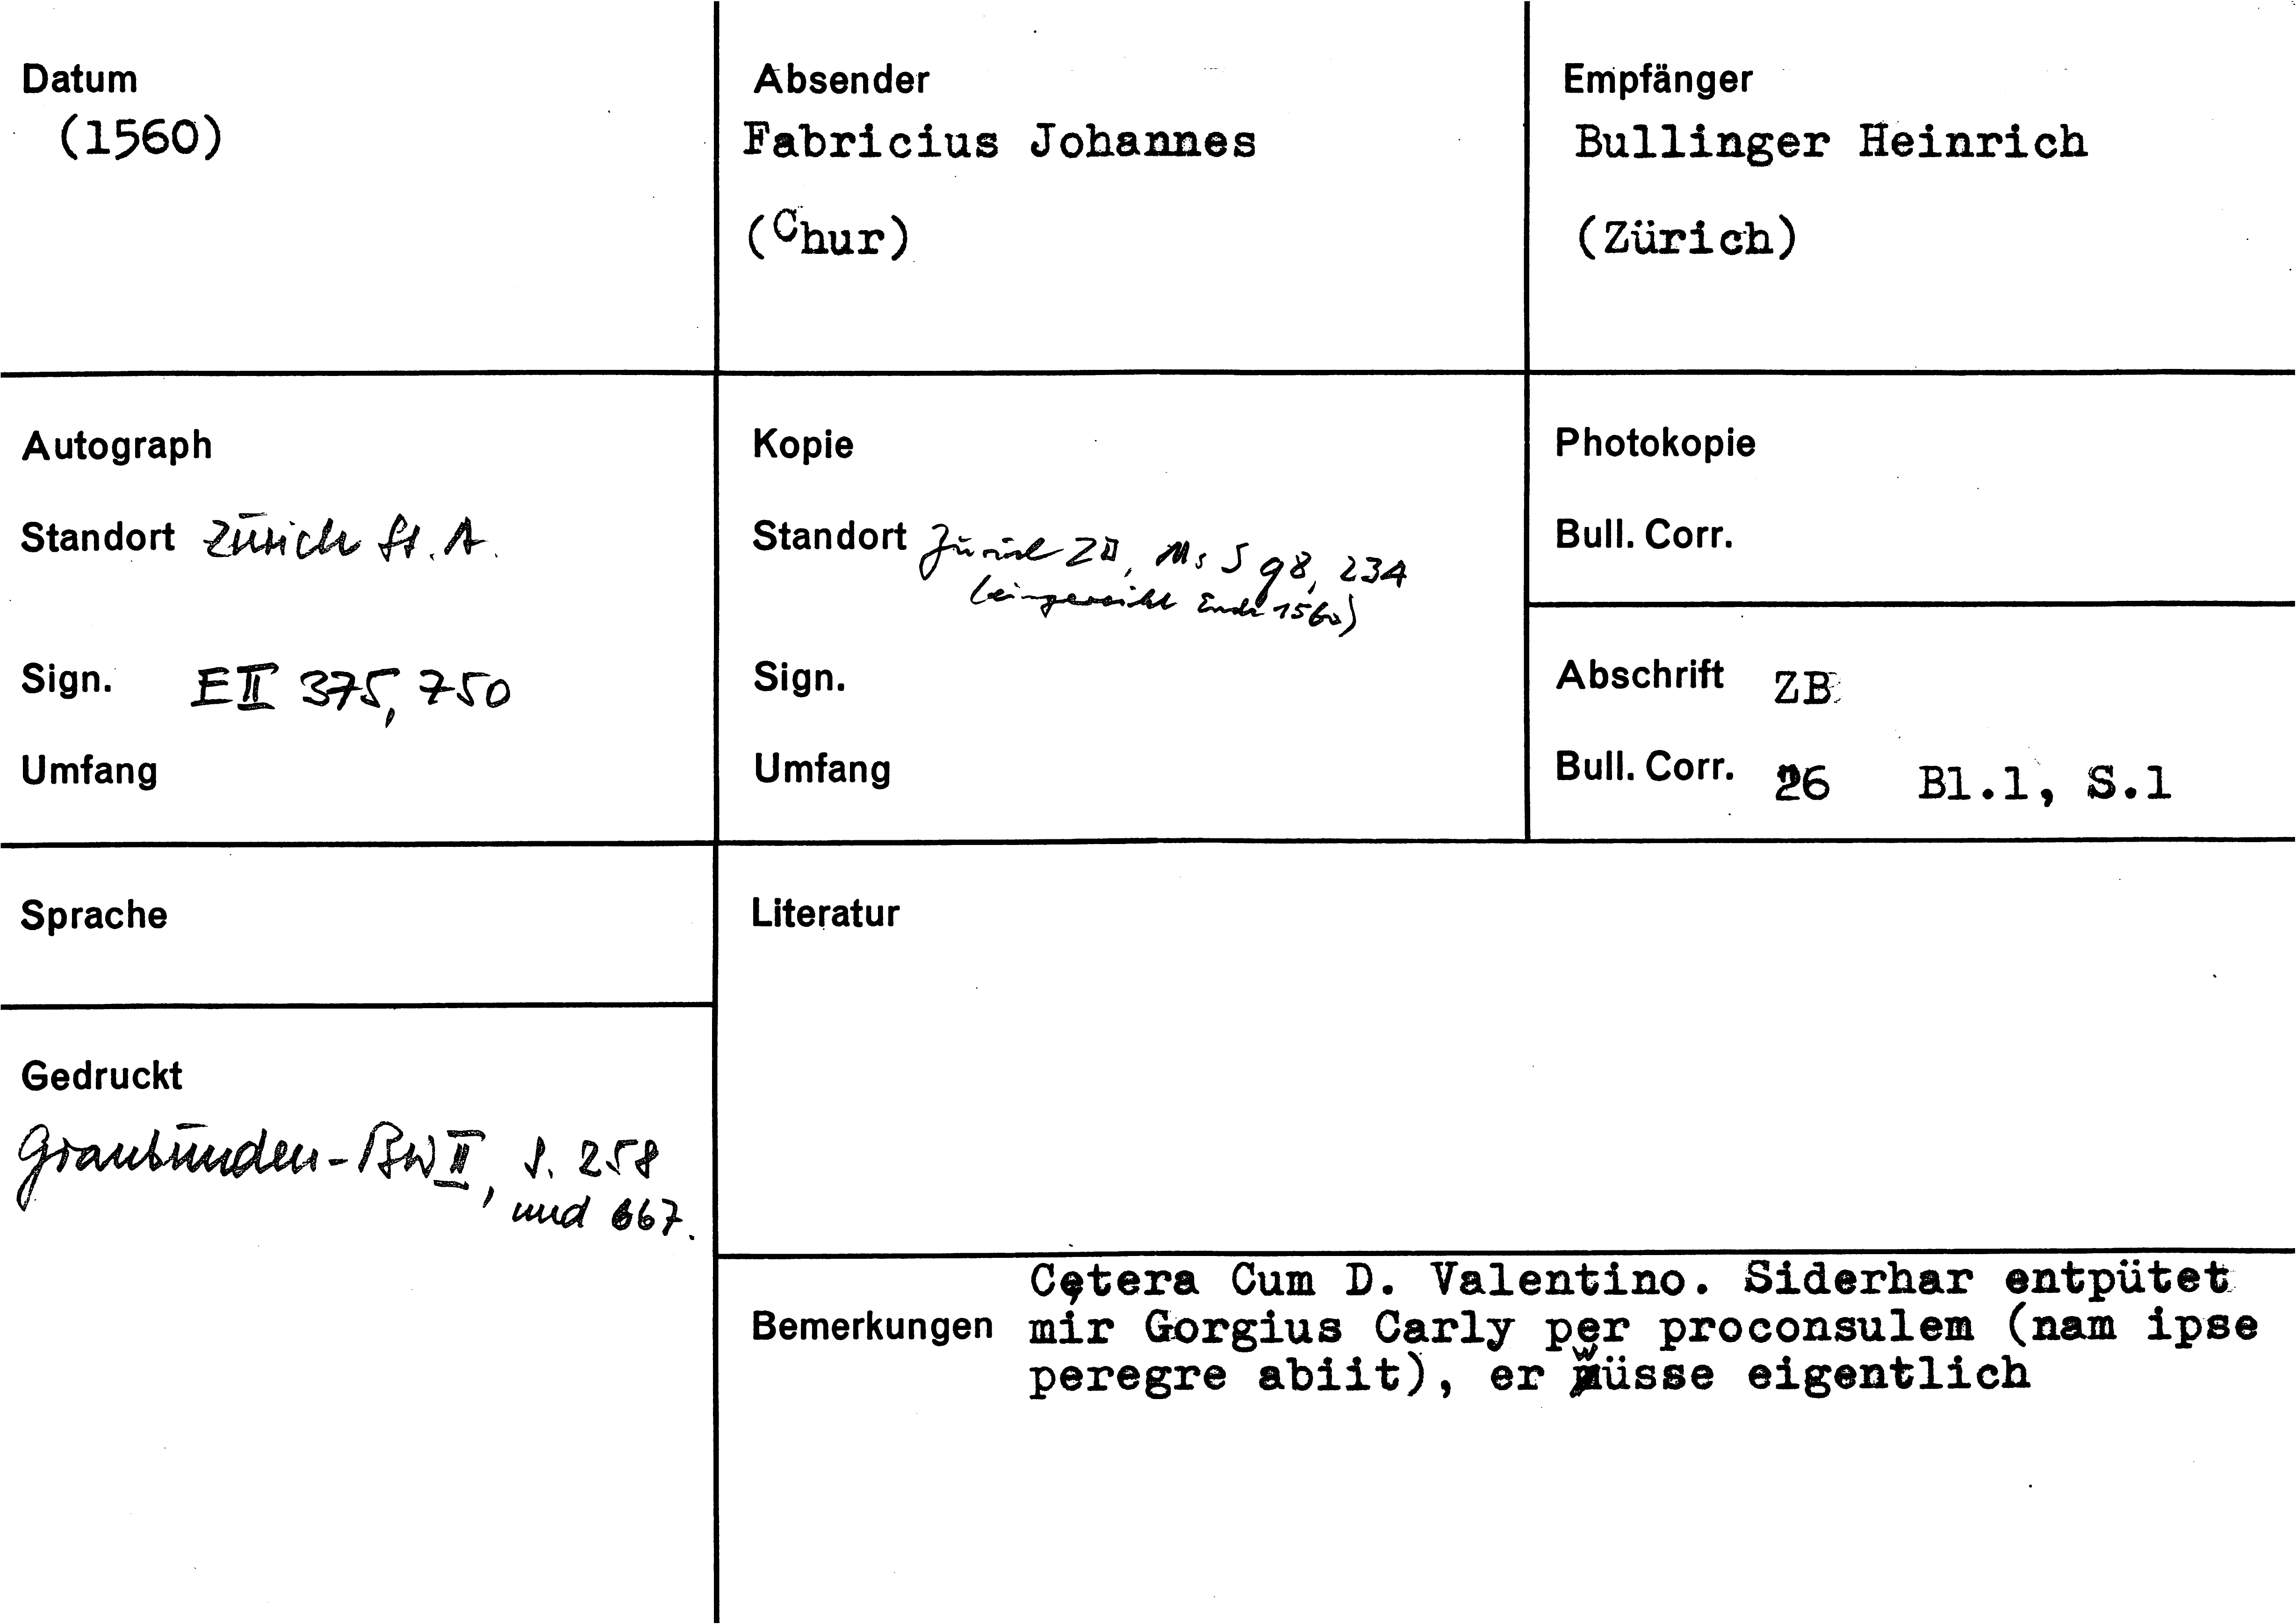 Datum
(1560)
Absender
Fabricius Johannes
(Chur)
Empfänger
Bullinger Heinrich
(Zürich)
Autograph
Standort Zürich St. A.
Sign. E II 375, 750
Umfang
Kopie
Standort Zürich ZB, Ms S 98, 234
(eingereiht Ende 1560)
Sign.
Umfang
Photokopie
Bull. Corr.
Abschrift ZB
Bull. Corr. 26 Bl.1, S.1
Sprache
Gedruckt
Graubünden-BW II, S. 258
und 667.
Literatur
Bemerkungen
Cętera Cum D. Valentino. Siderhar entpütet
mir Gorgius Carly per proconsulem (nam ipse
peregre abiit), er wüsse eigentlich